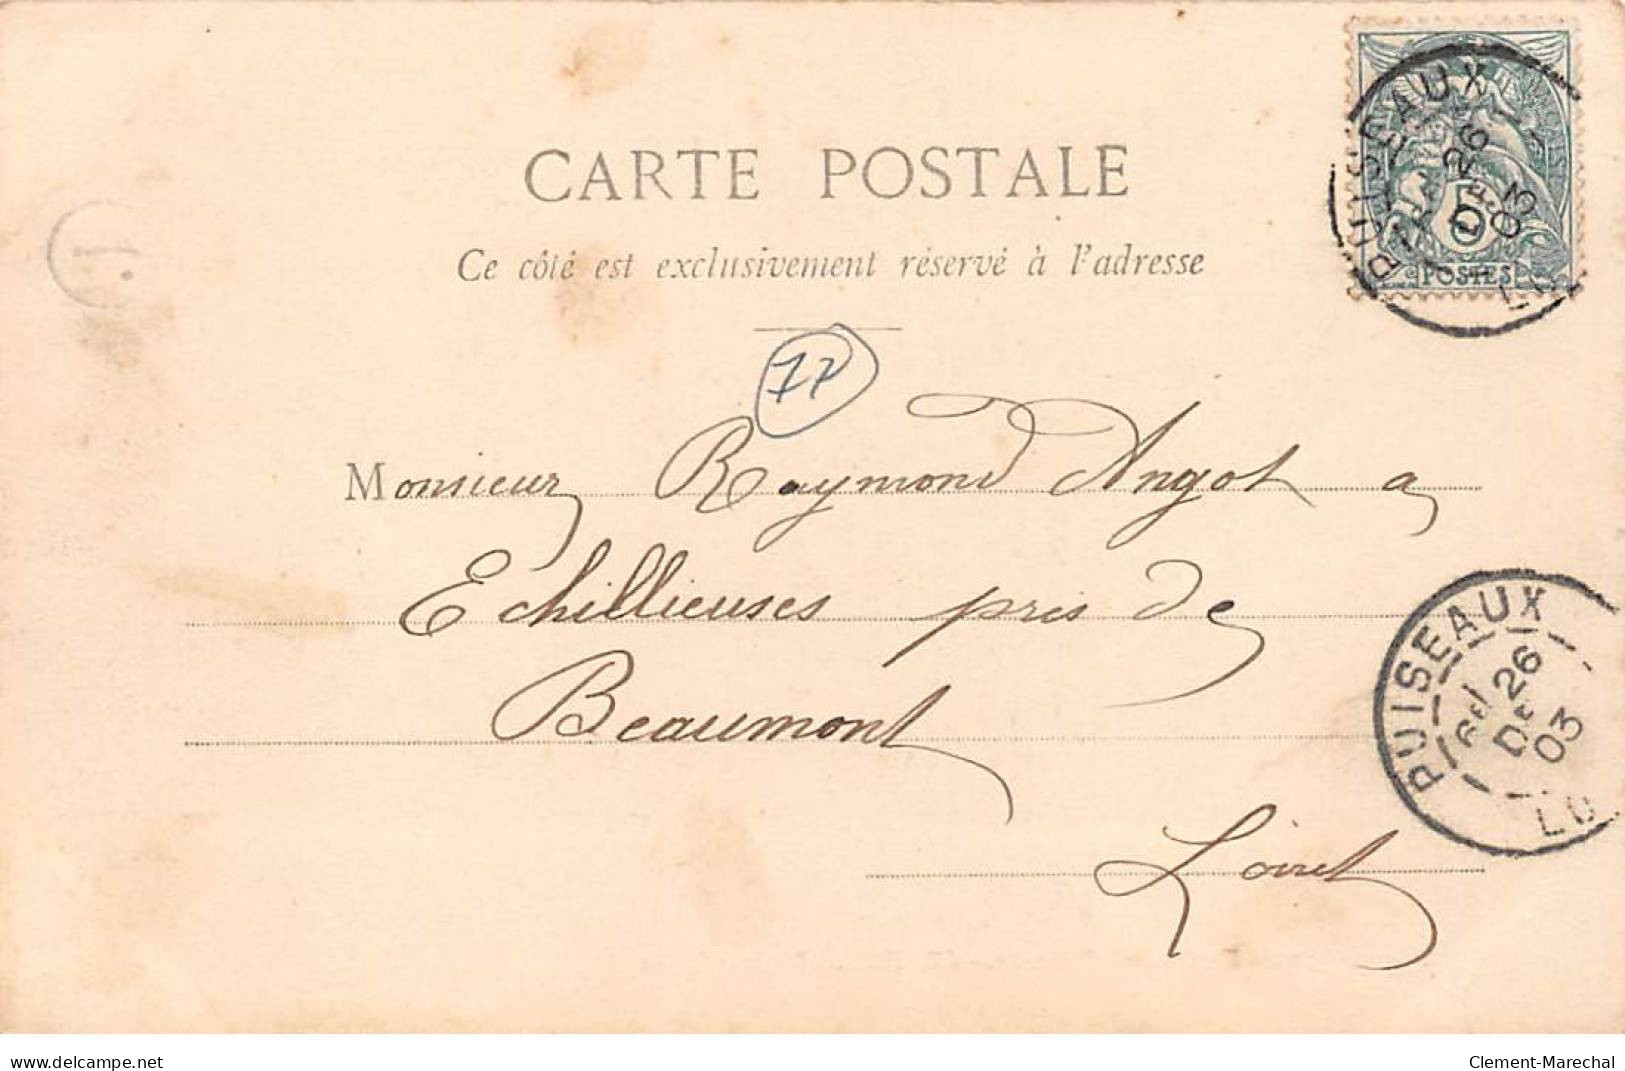 CARTE POSTALE
Ce côté est exclusivement réservé à l'adresse
77
Monsieur Raymond Angot a
Echillieuses pres de
Beaumont
Loiret
PUISEAUX
26
DE
03
5
POSTES
PUISEAUX
26
DE
03
LO
www.delcampe.net
Clement-Marechal